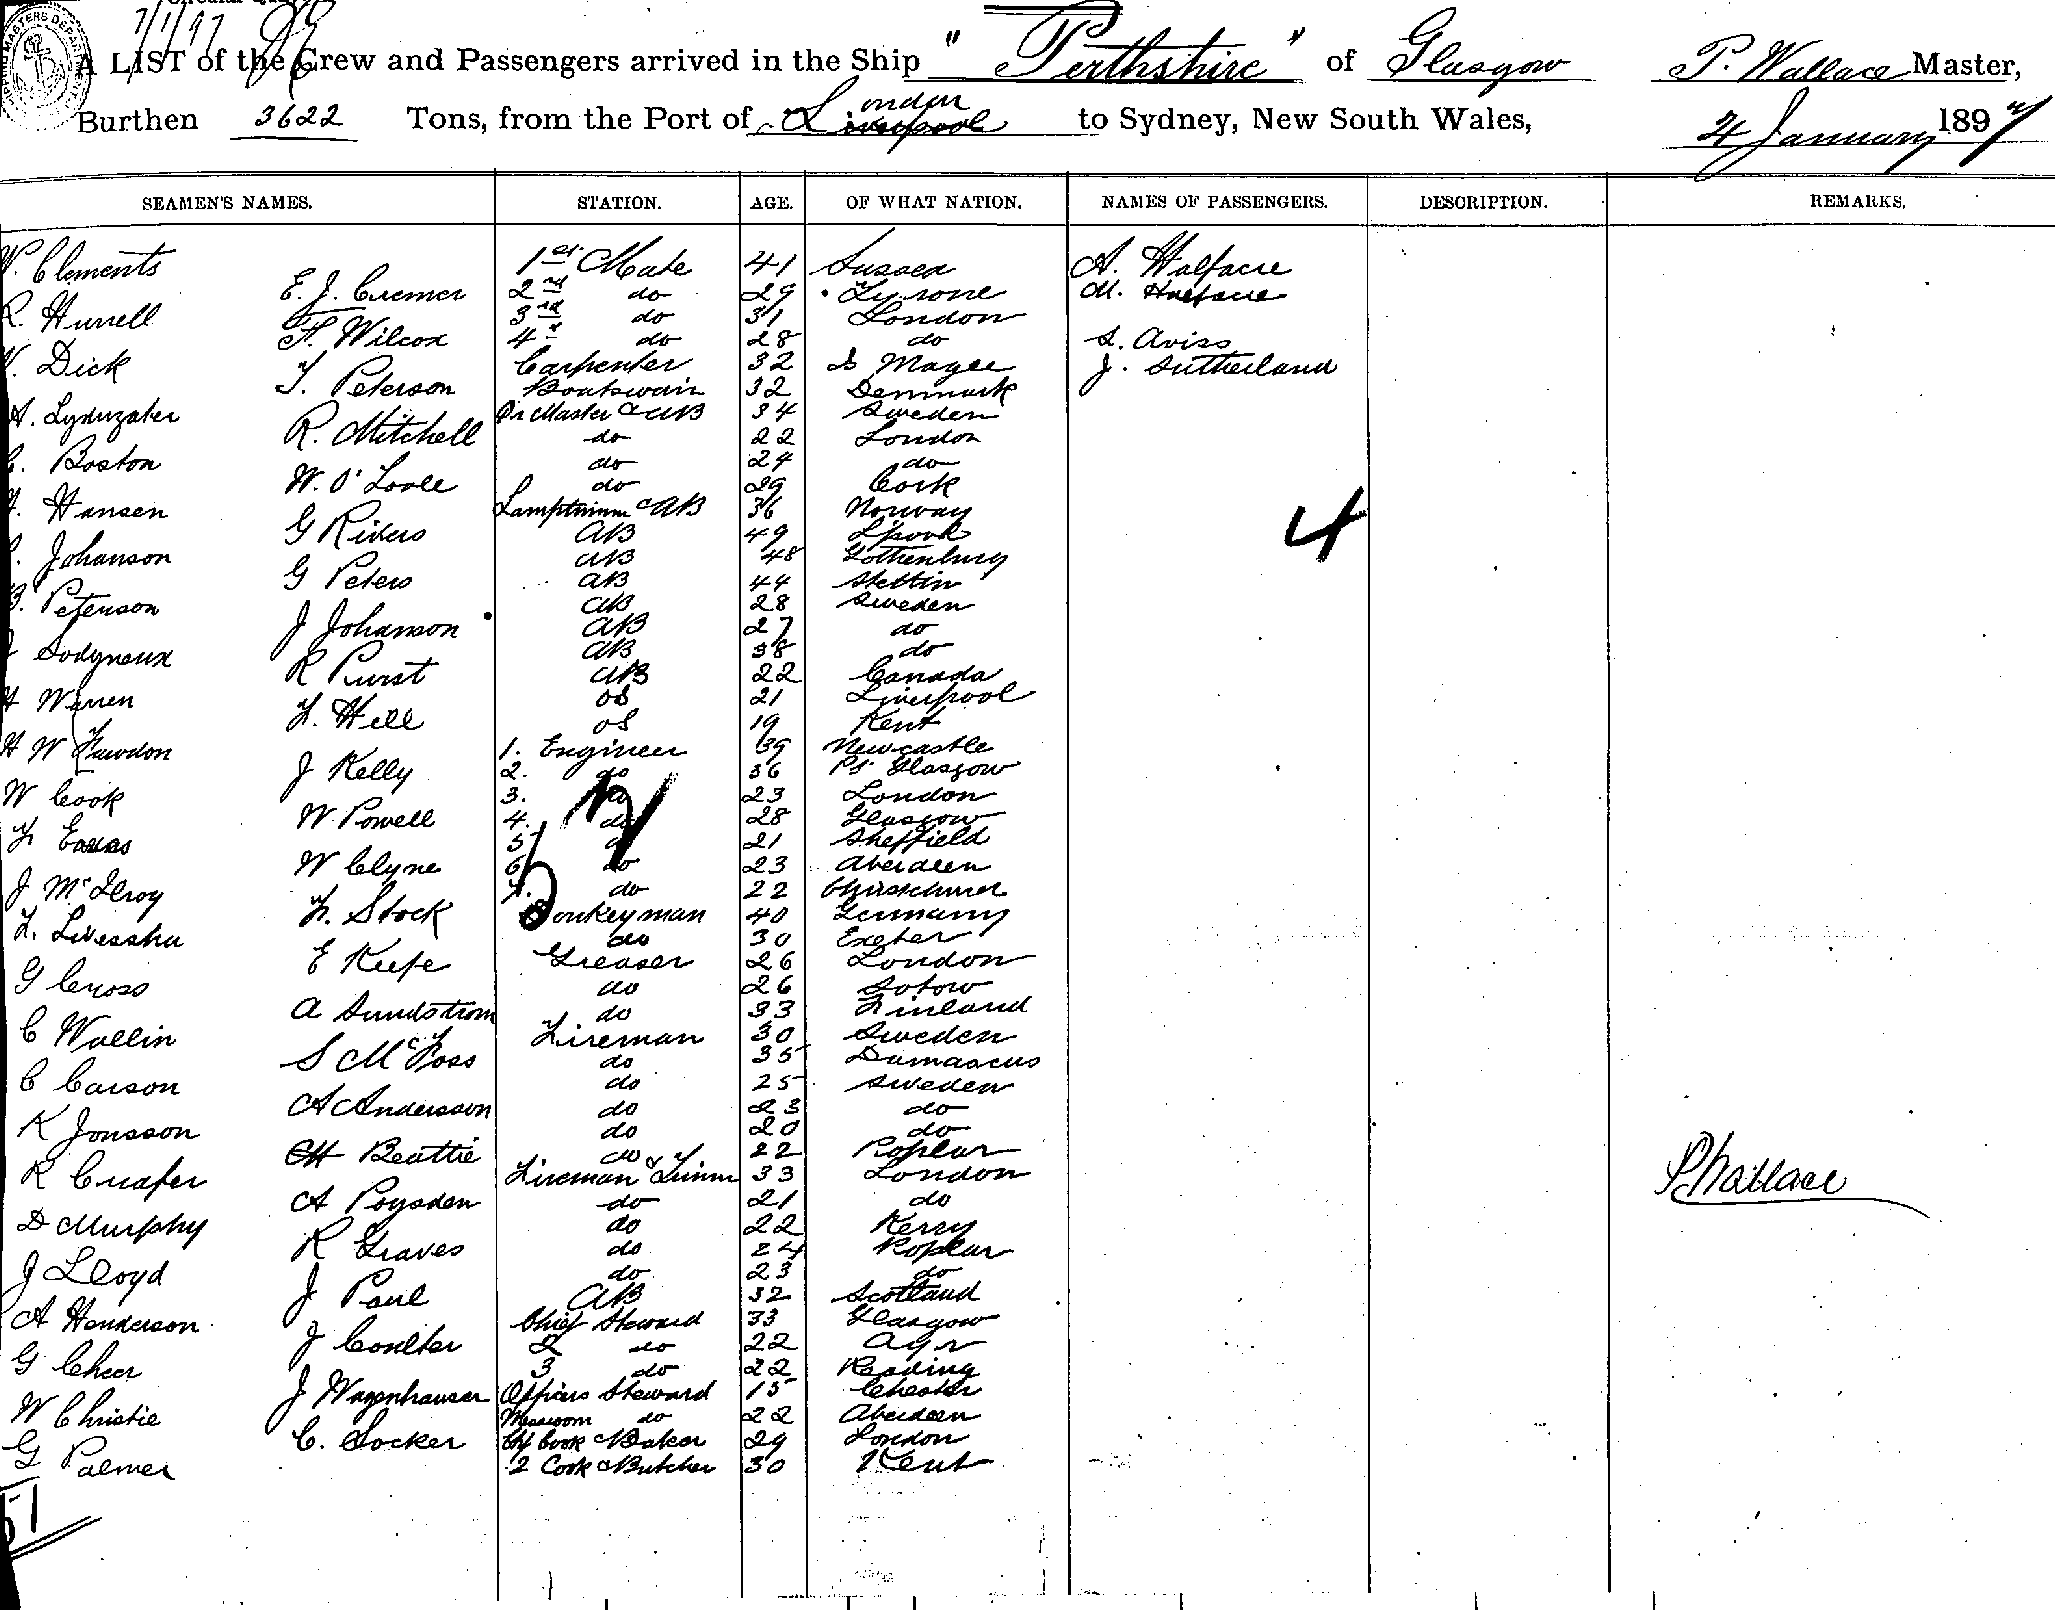 7/1/97
A LIST of the Crew and Passengers arrived in the Ship "Perthshire" of Glasgow P. Wallace Master,
Burthen 3622 Tons, from the Port of London Liverpool to Sydney, New South Wales, 4 January 1897
SEAMEN'S NAMES. STATION. AGE. OF WHAT NATION. NAMES OF PASSENGERS. DESCRIPTION. REMARKS.
Clements 1st Mate 41 Sussex A. Halfacre
E. J. Cremer 2nd do 29 Tyrone M. Halfacre
R. Hurrell 3rd do 31 London
F. Wilcox 4 do 28 do S. Aviss
Dick Carpenter 32 Magee J. Sutherland
T. Peterson Boatswain 32 Denmark
A. Master & AB 34 Sweden
R. Mitchell do 22 London
Boston do 24 do
W. O'Toole do 29 Cork
Hansen & AB 36 Norway
G Rivers AB 49 L'pool
Johanson AB 48 Gothenburg
G Peters AB 44 Stettin
Peterson AB 28 Sweden
J Johanson AB 27 do
AB 38 do
R Purst AB 22 Canada
H Warren OS 21 Liverpool
F. Hill OS 19 Kent
H W Rawdon 1. Engineer 39 Newcastle
J Kelly 2. do 36 Pt Glasgow
W Cook 3. do 23 London
W Powell 4. do 28 Glasgow
F Evans 5 do 21 Sheffield
W Clyne 6 do 23 Aberdeen
J McIlroy 7. do 22
F. Stock Donkeyman 40 Germany
F. do 30 Exeter
E Keefe Greaser 26 London
G Cross do 26
A Sundstrom do 33 Finland
C Wallin Fireman 30 Sweden
S McFoss do 35 Damascus
C Carson do 25 Sweden
A Andersson do 23 do
K Jonsson do 20 do
H Beattie do 22 Poplar
R Fireman & Trimm 33 London
A Poysden do 21 do
D Murphy do 22 Kerry
R Graves do 24 Poplar
J Lloyd do 23 do
J Paul AB 32 Scotland
A Henderson Chief Steward 33 Glasgow
J Coulter 2 do 22 Ayr
G Cheer 3 do 22 Reading
J Wagenhauser Officers Steward 15 Chester
W Christie Messroom do 22 Aberdeen
C. Socker Chf Cook & Baker 29 London
G Palmer 2 Cook & Butcher 30 Kent
4
P Wallace
51